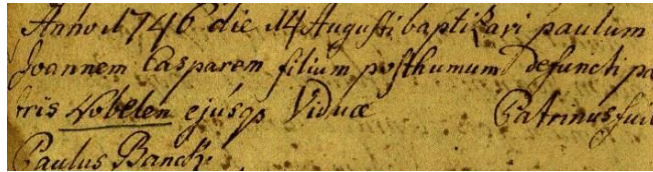 Anno 1746 die 14 Augusti baptizavi paulum
Joannem Casparem filium posthumum defuncti pa
tris Nobelen ejúsqs Viduæ Patrinus fuit
Paulus Banck: